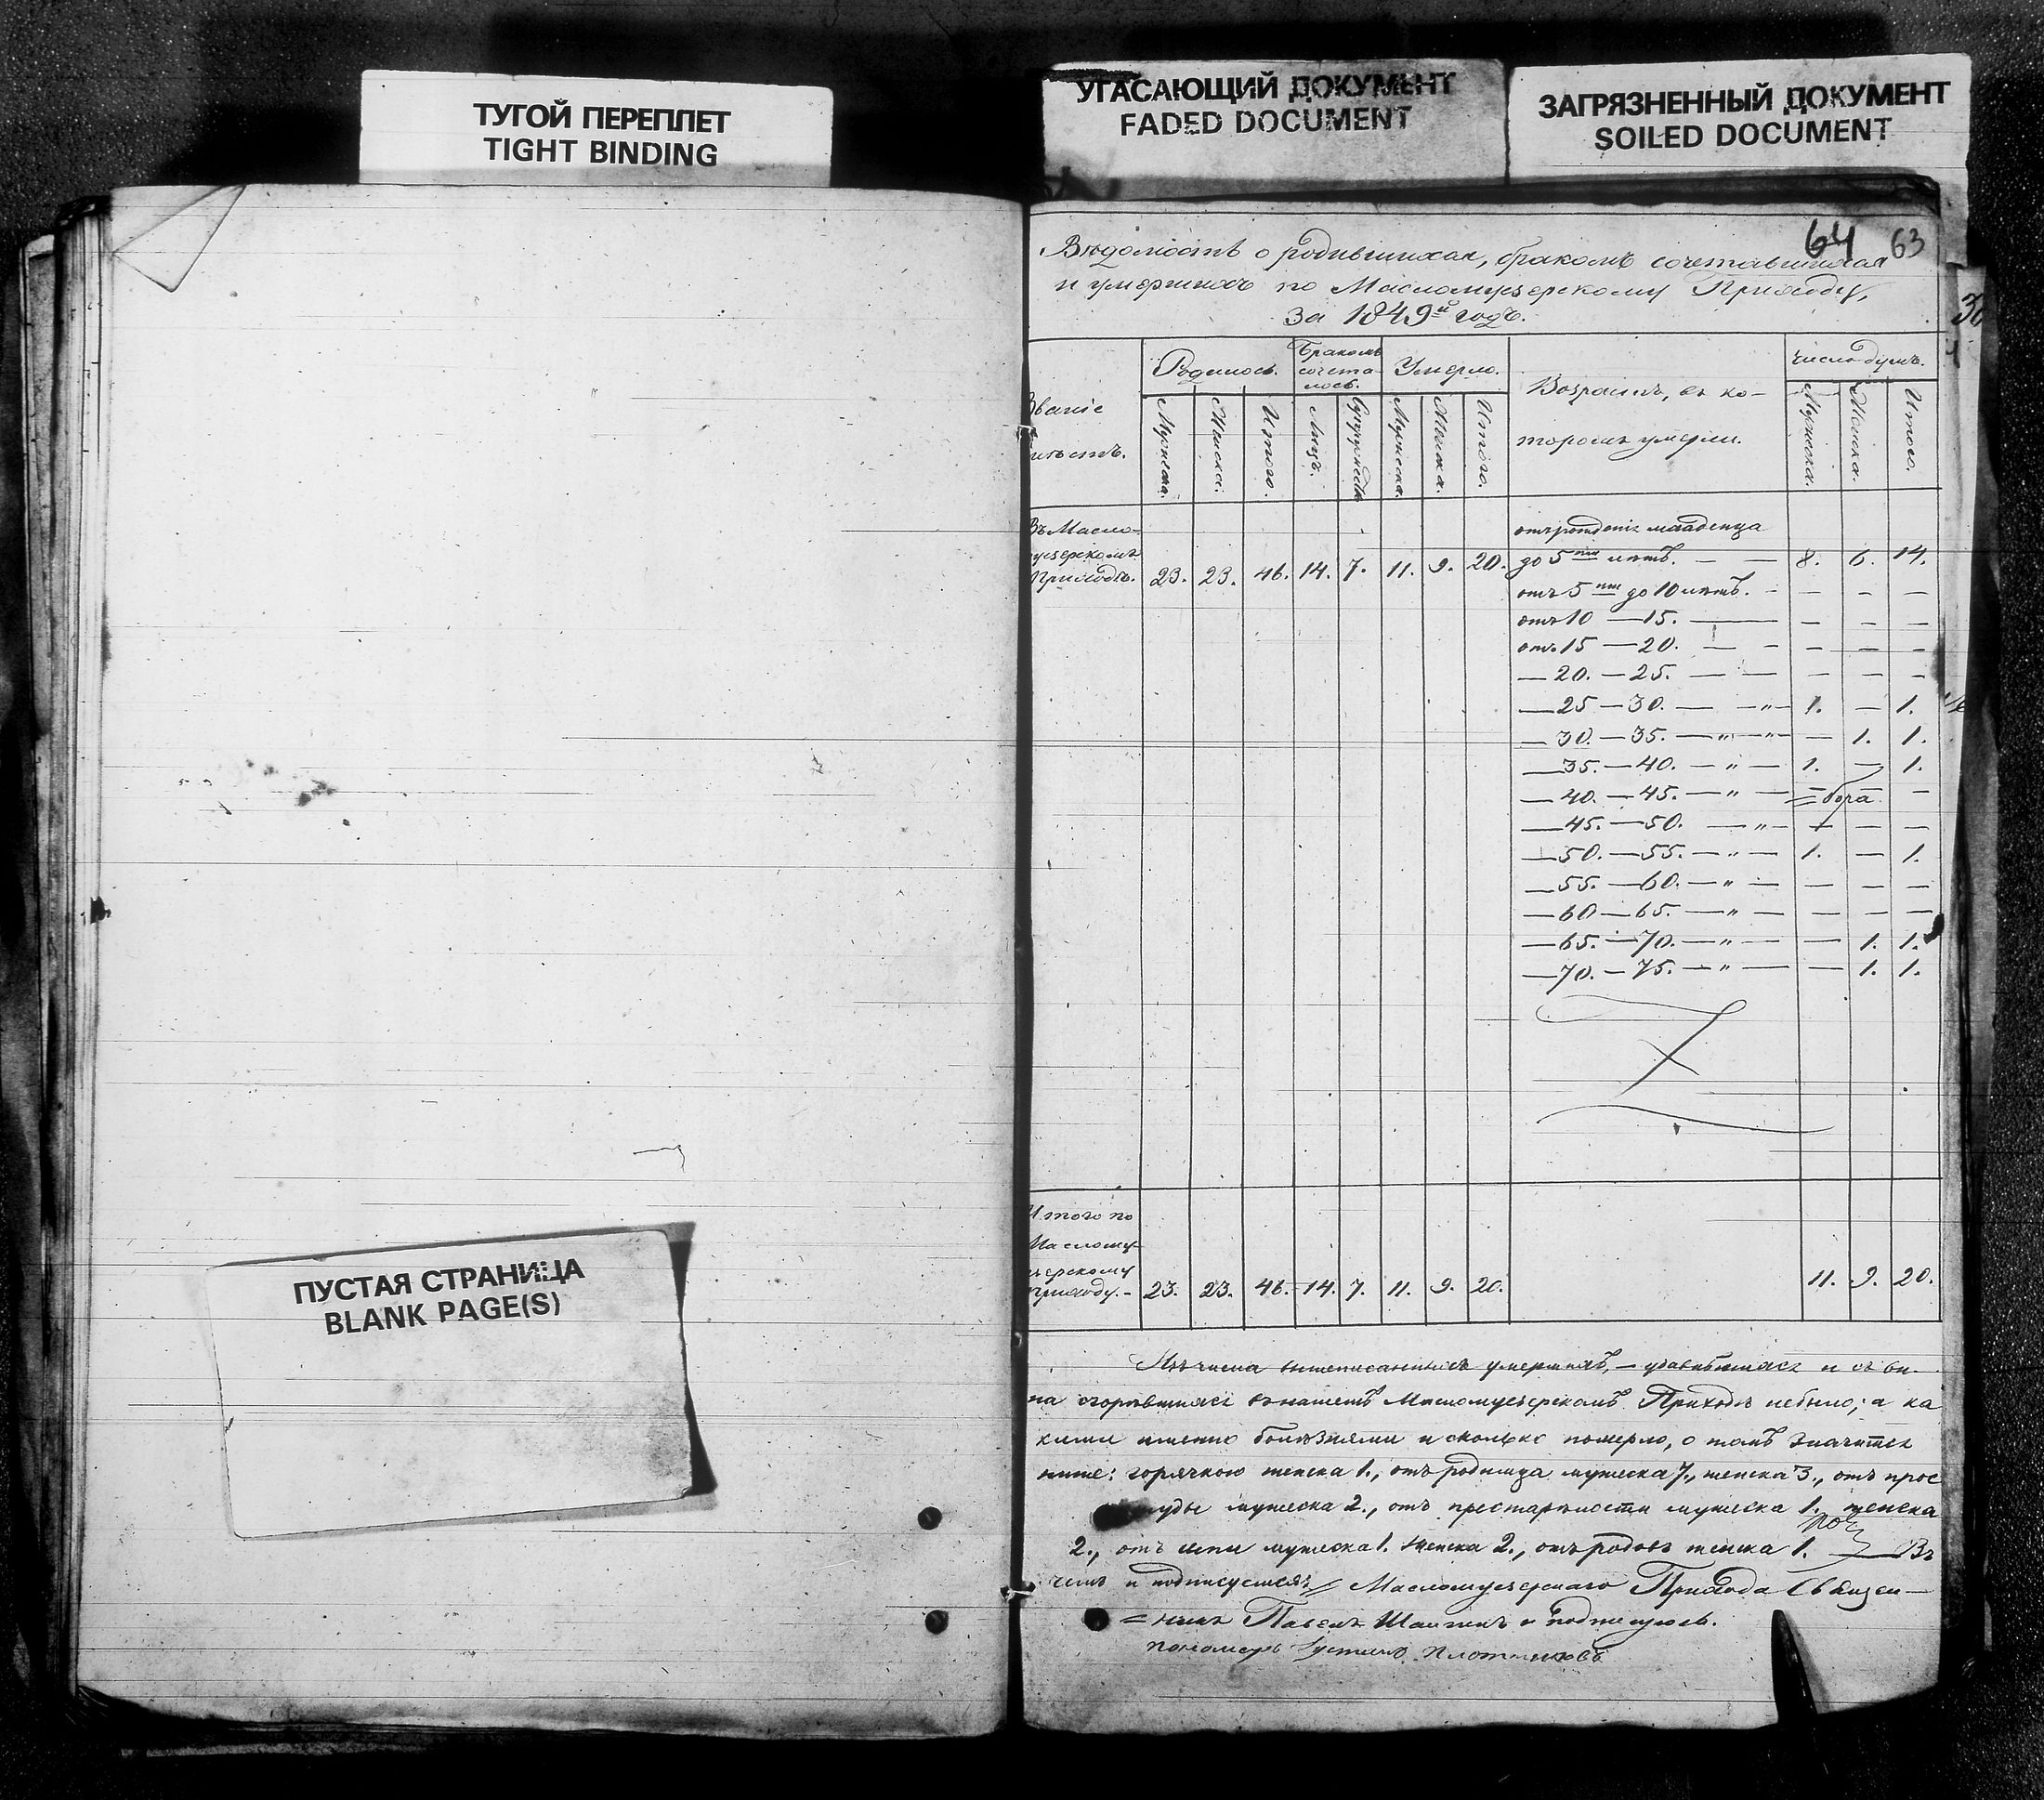 ТУГОЙ ПЕРЕПЛЕТ
TIGHT BINDING
УГАСАЮЩИЙ ДОКУМЕНТ
FADED DOCUMENT
ЗАГРЯЗНЕННЫЙ ДОКУМЕНТ
SOILED DOCUMENT
ПУСТАЯ СТРАНИЦА
BLANK PAGE(S)
64 63
Вѣдомость о родившихся, бракомъ сочетавшихся
и умершихъ по Масломуезерскому Приходу,
за 1849й годъ.
Званіе
Родилось.
Бракомъ
сочета-
лось.
Умерло.
Возрастъ, въ ко-
торомъ умерли.
Число душъ.
Мужеска.
Женска.
Итого.
Лицъ.
Супружествъ
Мужеска.
Женска.
Итого.
Мужеска.
Женска.
Итого.
Въ Масло-
муезерскомъ
Приходѣ. 23. 23. 46. 14. 7. 11. 9. 20.
отъ рожденія младенца
до 5ти лѣтъ. — — 8. 6. 14.
отъ 5ти до 10 лѣтъ. - — - —
отъ 10 — 15. — — - -
отъ 15 — 20. — - - - -
— 20. — 25. — — - - -
— 25 — 30. — — " — 1. — 1.
— 30. — 35. — " — " — — 1. 1.
— 35. — 40. — " — 1. — 1.
— 40. — 45. — " — — — -
— 45. — 50. — " — — — —
— 50. — 55. — " — 1. — 1.
— 55. — 60. — " — — — —
— 60 — 65. — " — — — —
— 65. — 70. — " — — 1. 1.
— 70. — 75. — " — — 1. 1.
Итого по
Маслому-
езерскому
Приходу. - 23. 23. 46. 14. 7. 11. 9. 20. 11. 9. 20.
Изъ числа вышеписанныхъ умершихъ, — удавившихся и съ ви-
на сгорѣвшихся въ нашемъ Масломуезерскомъ Приходѣ небыло; а ка
кими именно болѣзнями и сколько померло, о томъ значится
ниже: горячкою женска 1., отъ родимца мужеска 7., женска 3., отъ прос
уды мужеска 2., отъ престарѣлости мужеска 1. женска
2., отъ мужеска 1. женска 2., отъ родовъ женска 1. — Въ
чемъ и подписуемся: Масломуезерскаго Прихода Священ-
= никъ Павелъ подписуюсь.
пономарь Плотниковъ